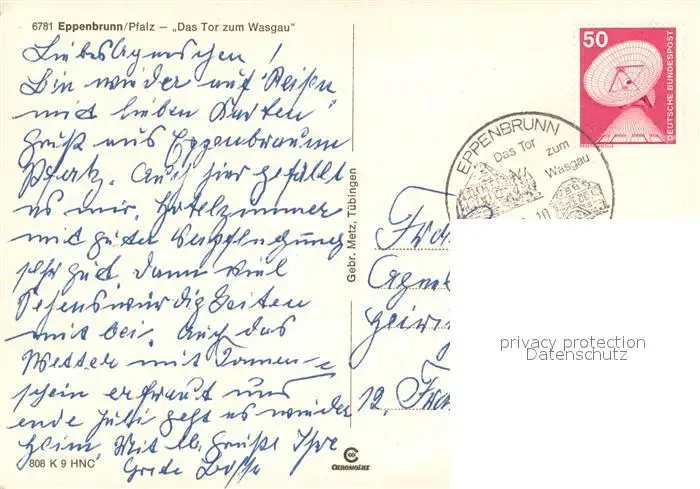 6781 Eppenbrunn/Pfalz – „Das Tor zum Wasgau"
Liebes Agneschen!
Bin wieder auf Reisen
mit lieben Karten
Gruß aus Eppenbrunn
Pfalz. Auch hier gefällt
es mir. Hotelzimmer
mit guter Verpflegung
sehr gut dann viel
Sehenswürdigkeiten
mit bei. Auch das
Wetter mit Sonnen-
schein erfreut uns
ende Juli geht es wieder
heim. Mit lb. Grüße Ihre
Grete
808 K 9 HNC
Gebr. Metz, Tübingen
CHROMOLUX
50
DEUTSCHE BUNDESPOST
EPPENBRUNN
Das Tor zum
Wasgau
10
privacy protection
Datenschutz